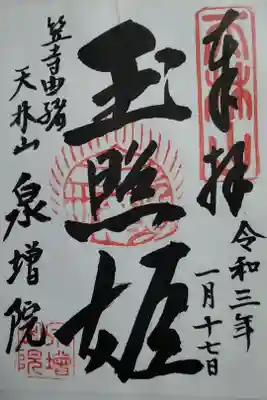 奉拝
令和三年
一月十七日
玉照姫
笠寺西方
天林山
泉増院